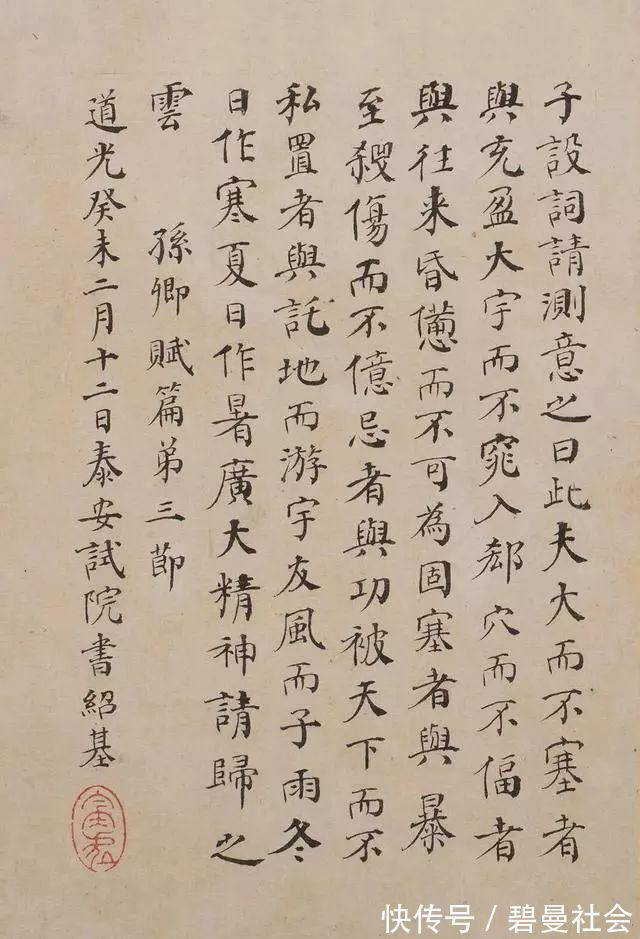 子設詞請測意之曰此夫大而不塞者
與充盈大宇而不窕入郄穴而不偪者
與往来昏憊而不可為固塞者與暴
至殺傷而不億忌者與功被天下而不
私置者與託地而游宇友風而子雨冬
日作寒夏日作暑廣大精神請歸之
雲　孫卿賦篇弟三節
道光癸未二月十二日泰安試院書紹基
快传号／碧曼社会